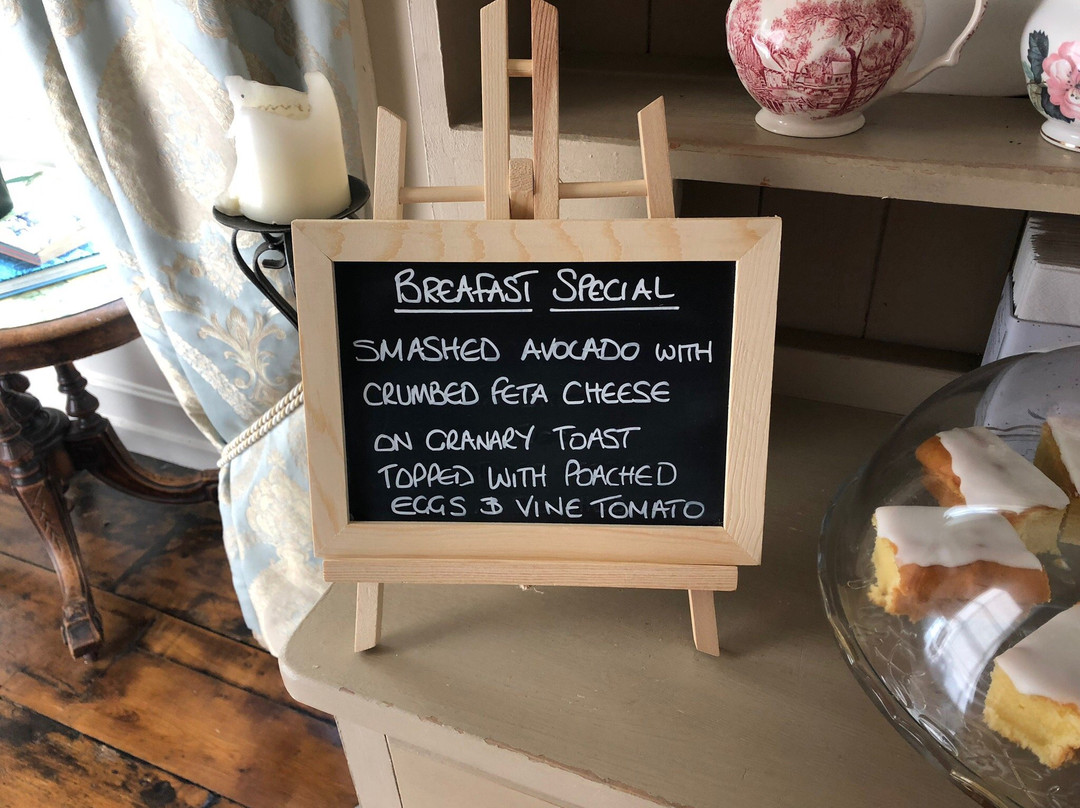 BREAFAST SPECIAL
SMASHED AVOCADO WITH
CRUMBED FETA CHEESE
ON GRANARY TOAST
TOPPED WITH POACHED
EGGS & VINE TOMATO